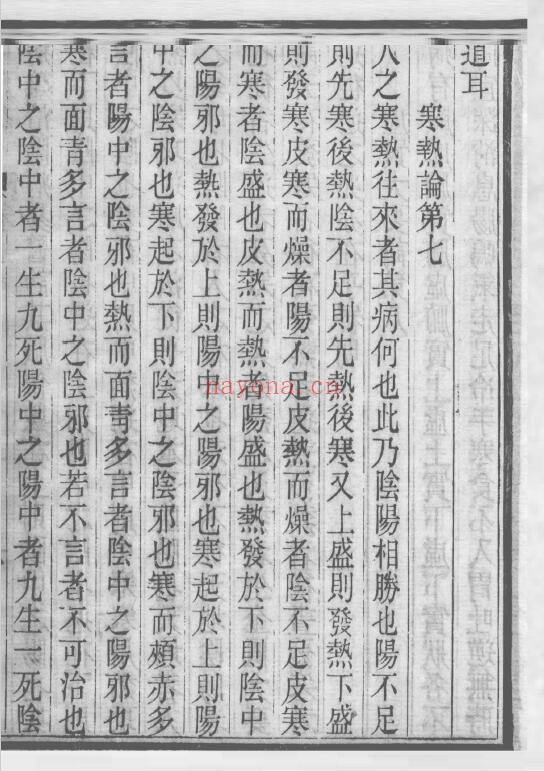 道耳
寒熱論第七
人之寒熱往來者其病何也此乃陰陽相勝也陽不足
則先寒後熱陰不足則先熱後寒又上盛則發熱下盛
則發寒皮寒而燥者陽不足皮熱而燥者陰不足皮寒
而寒者陰盛也皮熱而熱者陽盛也熱發於下則陰中
之陽邪也熱發於上則陽中之陽邪也寒起於上則陽
中之陰邪也寒起於下則陰中之陰邪也寒而頰赤多
言者陽中之陰邪也熱而面青多言者陰中之陽邪也
寒而面青多言者陰中之陰邪也若不言者不可治也
陰中之陰中者一生九死陽中之陽中者九生一死陰
nayona.cn